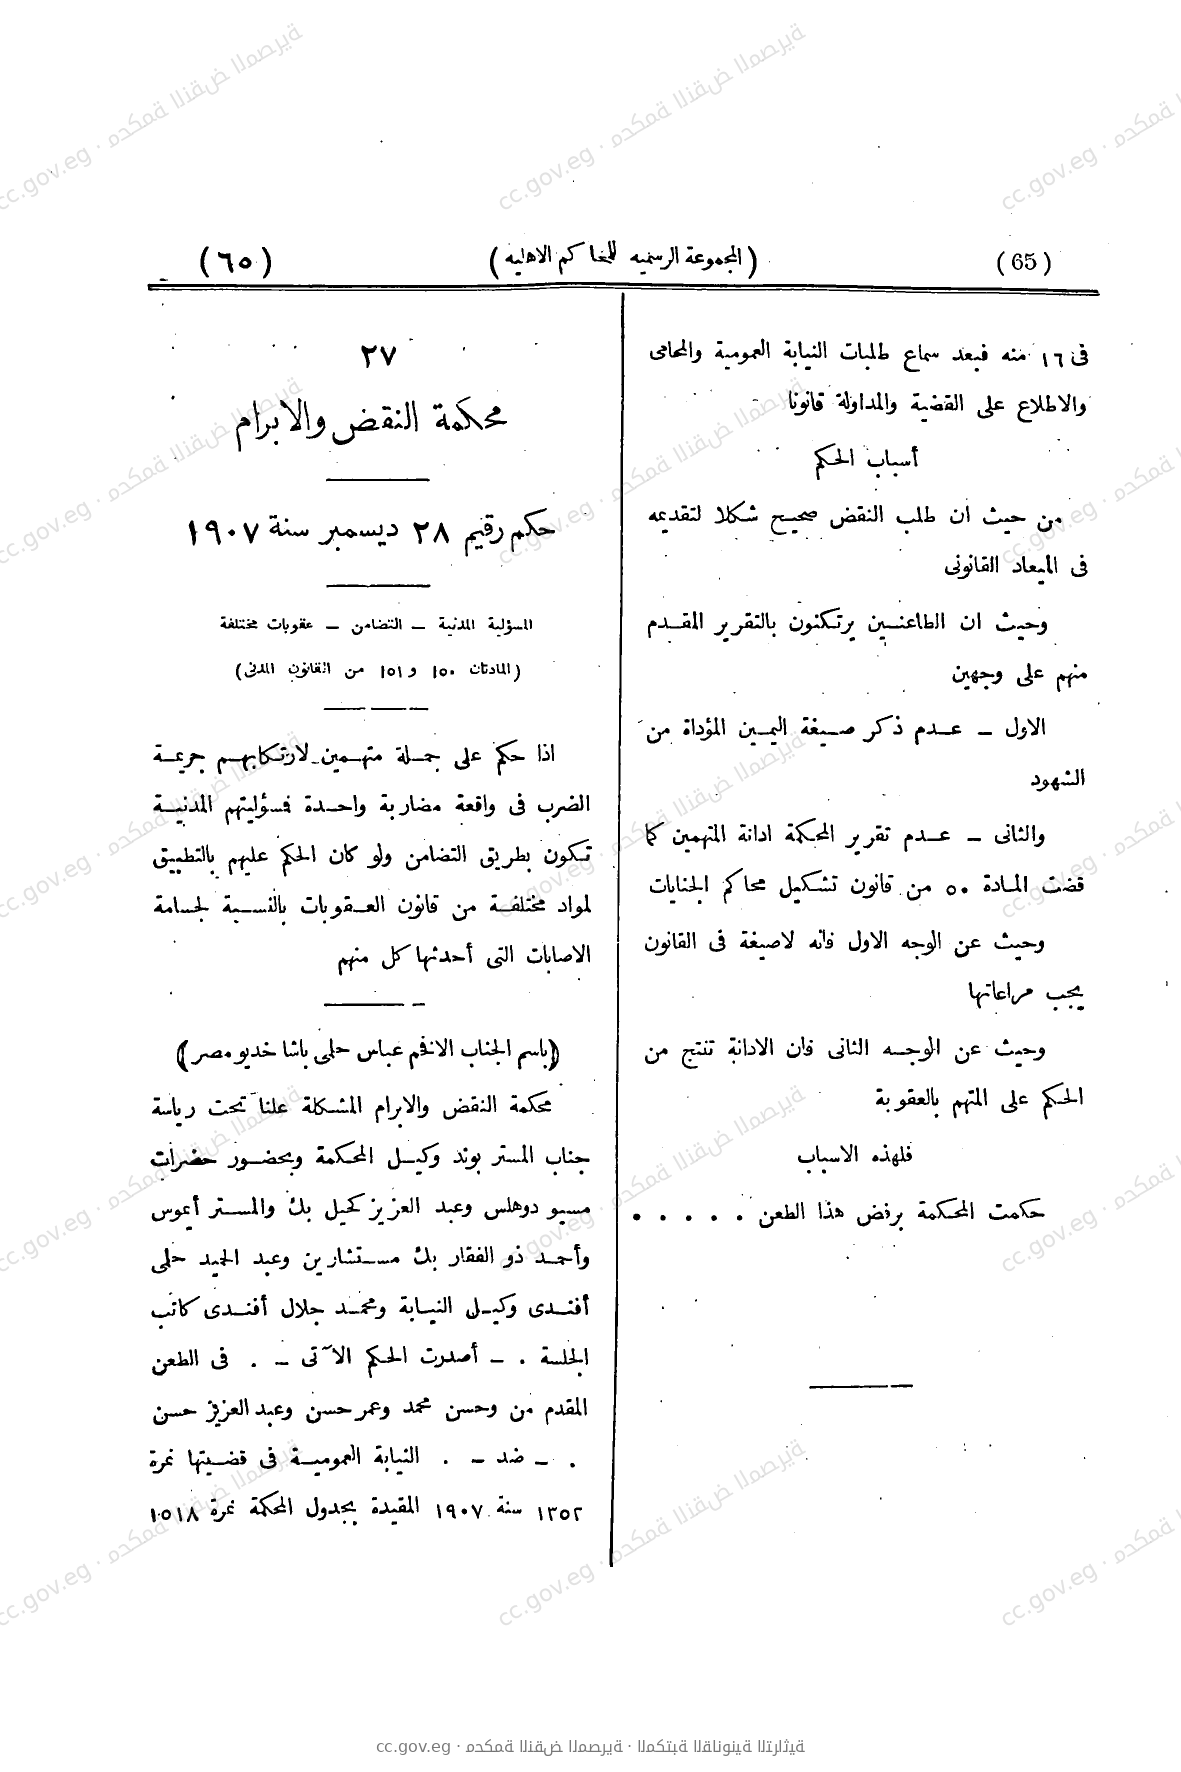 (65) (المجموعة الرسمیه للمحاكم الاهليه) (٦٥)
فى ١٦ منه فبعد سماع طلبات النيابة العمومية والمحامى
والاطلاع على القضية والمداولة قانونا
أسباب الحكم
من حيث ان طلب النقض صحيح شكلا لتقديمه
فى الميعاد القانونى
وحيث ان الطاعنين يرتكنون بالتقرير المقدم
منهم على وجهين
الاول – عدم ذكر صيغة اليمين المؤداة من
الشهود
والثانى – عدم تقرير المحكمة ادانة المتهمين كما
قضت المادة ٥٠ من قانون تشكيل محاكم الجنايات
وحيث عن الوجه الاول فانه لاصيغة فى القانون
يجب مراعاتها
وحيث عن الوجه الثانى فان الادانة تنتج من
الحكم على المتهم بالعقوبة
فلهذه الاسباب
حكمت المحكمة برفض هذا الطعن . . . . .
٢٧
محكمة النقض والابرام
حكم رقيم ٢٨ ديسمبر سنة ١٩٠٧
المسؤلية المدنية – التضامن – عقوبات مختلفة
(المادتان ١٥٠ و ١٥١ من القانون المدنى)
اذا حكم على جملة متهمين لارتكابهم جريمة
الضرب فى واقعة مضاربة واحدة فمسؤليتهم المدنية
تكون بطريق التضامن ولو كان الحكم عليهم بالتطبيق
لمواد مختلفة من قانون العقوبات بالنسبة لجسامة
الاصابات التى أحدثها كل منهم
(باسم الجناب الافخم عباس حلمى باشا خديو مصر)
محكمة النقض والابرام المشكلة علنا تحت رياسة
جناب المستر بوند وكيل المحكمة وبحضور حضرات
مسيو دوهلس وعبد العزيز كحيل بك والمستر أيموس
وأحمد ذو الفقار بك مستشارين وعبد الحميد حلمى
أفندى وكيل النيابة ومحمد جلال أفندى كاتب
الجلسة . – أصدرت الحكم الآتى – . فى الطعن
المقدم من وحسن محمد وعمر حسن وعبد العزيز حسن
. – ضد – . النيابة العمومية فى قضيتها نمرة
١٣٥٢ سنة ١٩٠٧ المقيدة بجدول المحكمة نمرة ١٥١٨
cc.gov.eg · محكمة النقض المصرية · المكتبة القانونية التراثية